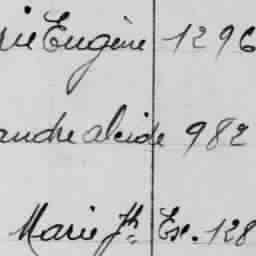 rie Eugène 1296
andre alcide 982
Marie Jh Ex. 128